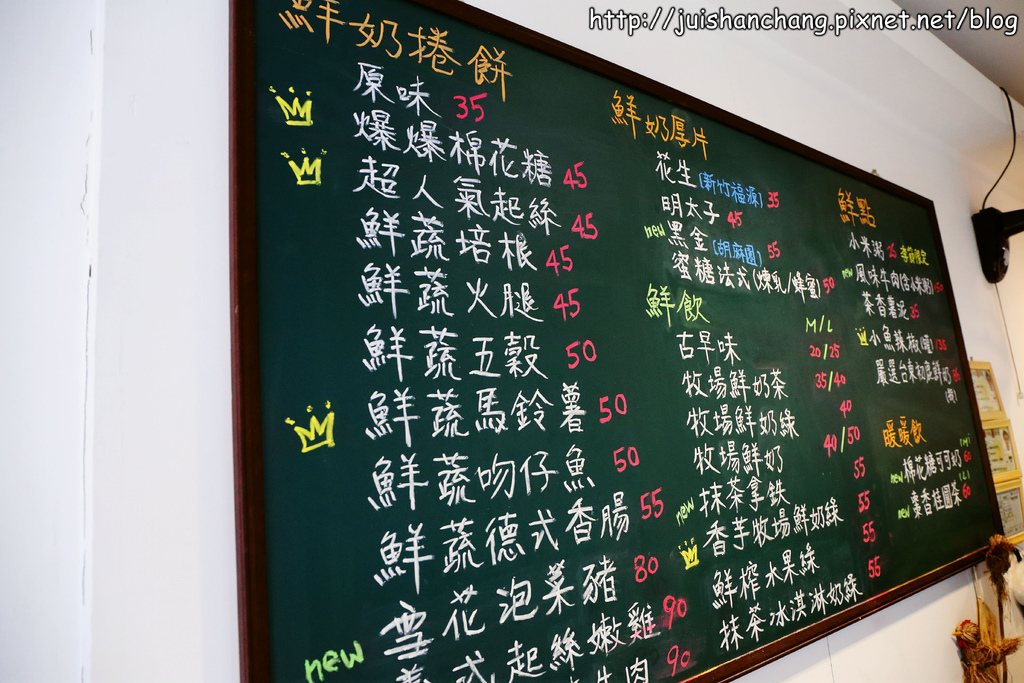 http://juishanchang.pixnet.net/blog
鮮奶捲餅
原味 35
爆爆棉花糖 45
超人氣起絲 45
鮮蔬培根 45
鮮蔬火腿 45
鮮蔬五穀 50
鮮蔬馬鈴薯 50
鮮蔬吻仔魚 50
鮮蔬德式香腸 55
雪花泡菜豬 80
new 義式起絲嫩雞 90
牛肉 90
鮮奶厚片
花生(新竹福源) 35
明太子 45
new 黑金(胡麻圓) 55
蜜糖法式(煉乳/蜂蜜) 50
鮮飲 M/L
古早味 20/25
牧場鮮奶茶 35/40
牧場鮮奶綠 40
牧場鮮奶 40/50
new 抹茶拿鐵 55
香芋牧場鮮奶綠 55
鮮榨水果綠 55
抹茶冰淇淋奶綠 55
鮮點
小米粥 25 季節限定
new 風味牛肉(含小米粥) 150
茶香薯泥 35
小魚辣椒(罐) 135
嚴選台東初鹿鮮奶
暖暖飲
new 棉花糖可可奶 (M) 60
new 棗香桂圓茶 (L) 60